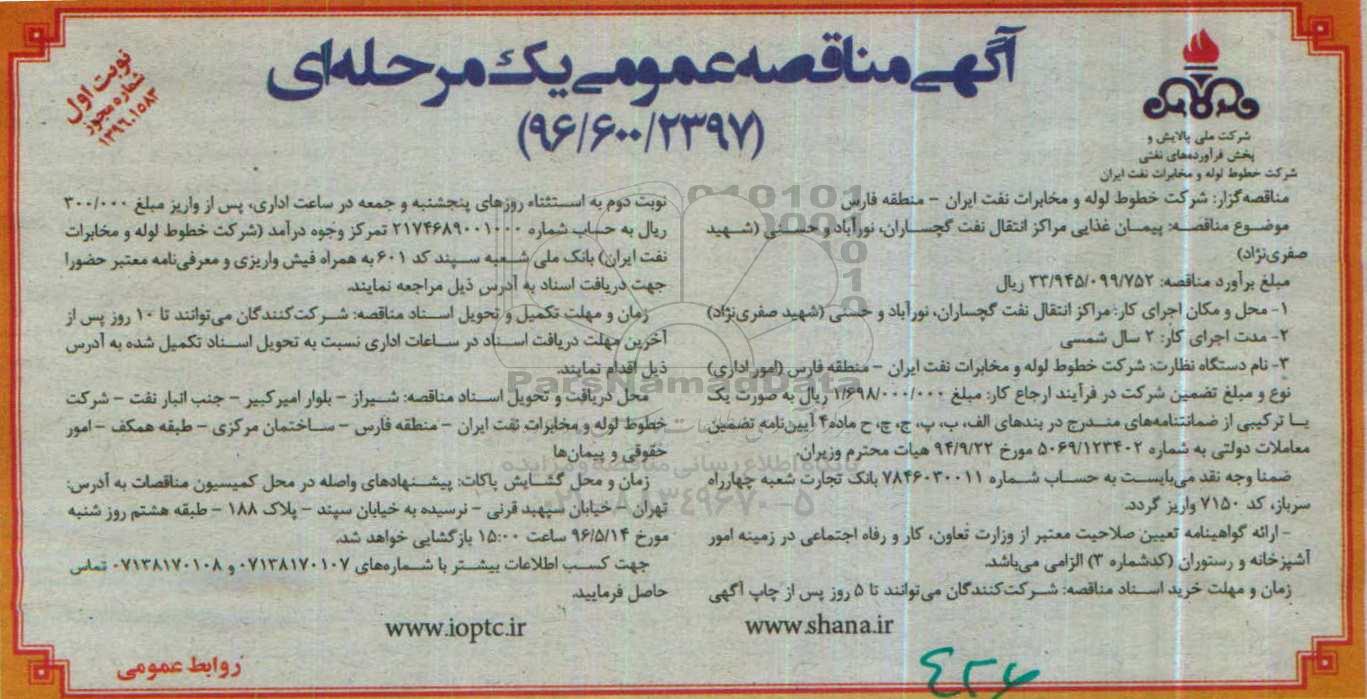 آگهی مناقصه عمومی یک مرحله‌ای
(۹۶/۶۰۰/۲۳۹۷)
نوبت اول
شماره مجوز
۱۳۹۶.۱۵۸۳
شرکت ملی پالایش و
پخش فرآورده‌های نفتی
شرکت خطوط لوله و مخابرات نفت ایران
مناقصه‌گزار: شرکت خطوط لوله و مخابرات نفت ایران – منطقه فارس
موضوع مناقصه: پیمان غذایی مراکز انتقال نفت گچساران، نورآباد و حسنی (شهید
صفری‌نژاد)
مبلغ برآورد مناقصه: ۳۳/۹۴۵/۰۹۹/۷۵۲ ریال
۱- محل و مکان اجرای کار: مراکز انتقال نفت گچساران، نورآباد و حسنی (شهید صفری‌نژاد)
۲- مدت اجرای کار: ۲ سال شمسی
۳- نام دستگاه نظارت: شرکت خطوط لوله و مخابرات نفت ایران – منطقه فارس (امور اداری)
نوع و مبلغ تضمین شرکت در فرآیند ارجاع کار: مبلغ ۱/۶۹۸/۰۰۰/۰۰۰ ریال به صورت یک
یا ترکیبی از ضمانتنامه‌های مندرج در بندهای الف، ب، پ، ج، چ، ح ماده۴ آیین‌نامه تضمین
معاملات دولتی به شماره ۵۰۶۹/۱۲۳۴۰۲ مورخ ۹۴/۹/۲۲ هیات محترم وزیران.
ضمنا وجه نقد می‌بایست به حساب شماره ۷۸۴۶۰۳۰۰۱۱ بانک تجارت شعبه چهارراه
سرباز، کد ۷۱۵۰ واریز گردد.
- ارائه گواهینامه تعیین صلاحیت معتبر از وزارت تعاون، کار و رفاه اجتماعی در زمینه امور
آشپزخانه و رستوران (کدشماره ۳) الزامی می‌باشد.
زمان و مهلت خرید اسناد مناقصه: شرکت‌کنندگان می‌توانند تا ۵ روز پس از چاپ آگهی
www.shana.ir
نوبت دوم به استثناء روزهای پنجشنبه و جمعه در ساعت اداری، پس از واریز مبلغ ۳۰۰/۰۰۰
ریال به حساب شماره ۲۱۷۴۶۸۹۰۰۱۰۰۰ تمرکز وجوه درآمد (شرکت خطوط لوله و مخابرات
نفت ایران) بانک ملی شعبه سپند کد ۶۰۱ به همراه فیش واریزی و معرفی‌نامه معتبر حضورا
جهت دریافت اسناد به آدرس ذیل مراجعه نمایند.
زمان و مهلت تکمیل و تحویل اسناد مناقصه: شرکت‌کنندگان می‌توانند تا ۱۰ روز پس از
آخرین مهلت دریافت اسناد در ساعات اداری نسبت به تحویل اسناد تکمیل شده به آدرس
ذیل اقدام نمایند.
محل دریافت و تحویل اسناد مناقصه: شیراز – بلوار امیرکبیر – جنب انبار نفت – شرکت
خطوط لوله و مخابرات نفت ایران – منطقه فارس – ساختمان مرکزی – طبقه همکف – امور
حقوقی و پیمان‌ها
زمان و محل گشایش پاکات: پیشنهادهای واصله در محل کمیسیون مناقصات به آدرس:
تهران – خیابان سپهبد قرنی – نرسیده به خیابان سپند – پلاک ۱۸۸ – طبقه هشتم روز شنبه
مورخ ۹۶/۵/۱۴ ساعت ۱۵:۰۰ بازگشایی خواهد شد.
جهت کسب اطلاعات بیشتر با شماره‌های ۰۷۱۳۸۱۷۰۱۰۷ و ۰۷۱۳۸۱۷۰۱۰۸ تماس
حاصل فرمایید.
www.ioptc.ir
روابط عمومی
ParsNamadData
پایگاه اطلاع رسانی مناقصه و مزایده
۰۲۱-۸۸۳۴۹۶۷۰-۵